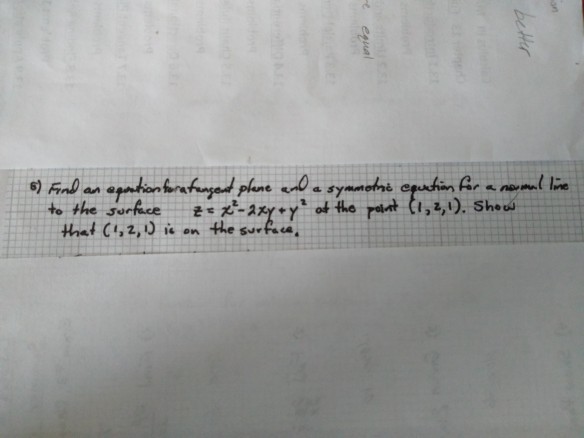 on
better
e equal
6) Find an equation for a tangent plane and a symmetric equation for a normal line
to the surface z = x² - 2xy + y² at the point (1,2,1). Show
that (1,2,1) is on the surface.